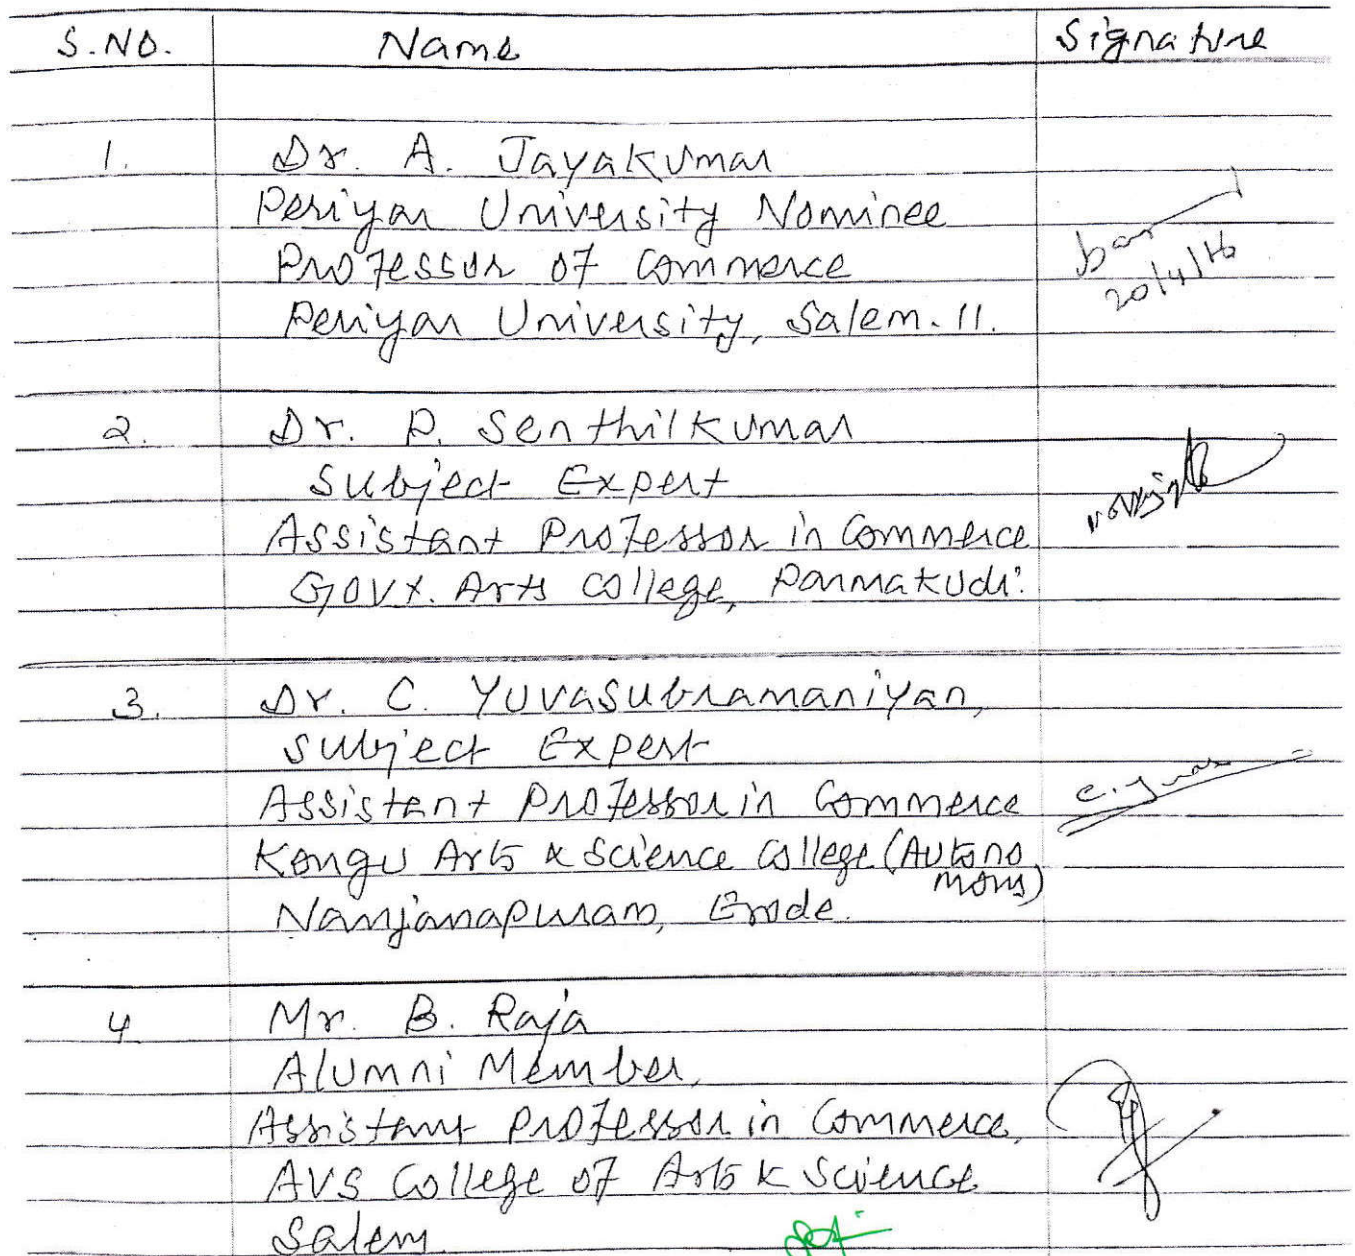 S.NO. Name Signature
1. Dr. A. Jayakumar
Periyar University Nominee
Professor of Commerce
Periyar University, Salem-11.
20/4/16
2. Dr. P. Senthilkumar
Subject Expert
Assistant Professor in Commerce
Govt. Arts College, Parmakudi.
3. Dr. C. Yuvasubramaniyan,
Subject Expert
Assistant Professor in Commerce
Kongu Arts & Science College (Autono
mous)
Nanjanapuram, Erode.
4 Mr. B. Raja
Alumni Member,
Assistant Professor in Commerce,
AVS College of Arts & Science
Salem.